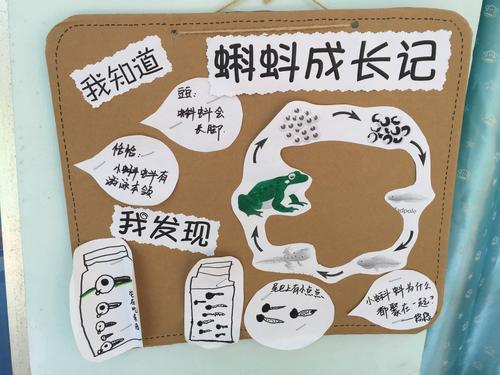 我知道
蝌蚪成长记
豆:
蝌蚪会
长脚.
恬恬:
小蝌蚪有
游泳本领
我发现
Tadpole
尾巴上有小点点
小蝌蚪为什么
都聚在一起?